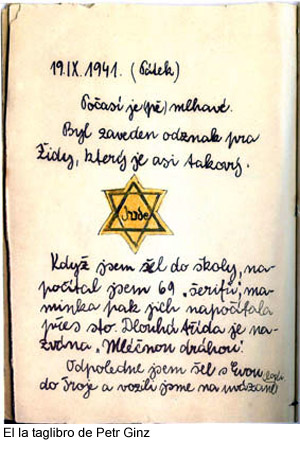 19.IX. 1941. (Pátek)
Počasí je (pě) mlhavé.
Byl zaveden odznak pro
Židy, který je asi takový.
Jude
Když jsem šel do školy, na-
počítal jsem 69 „šerifů“, ma-
minka pak jich napočítala
přes sto. Dlouhá třída je na-
zvána „Mléčnou dráhou“.
Odpoledne jsem šel s Evou
do Troje a vozili jsme na
El la taglibro de Petr Ginz